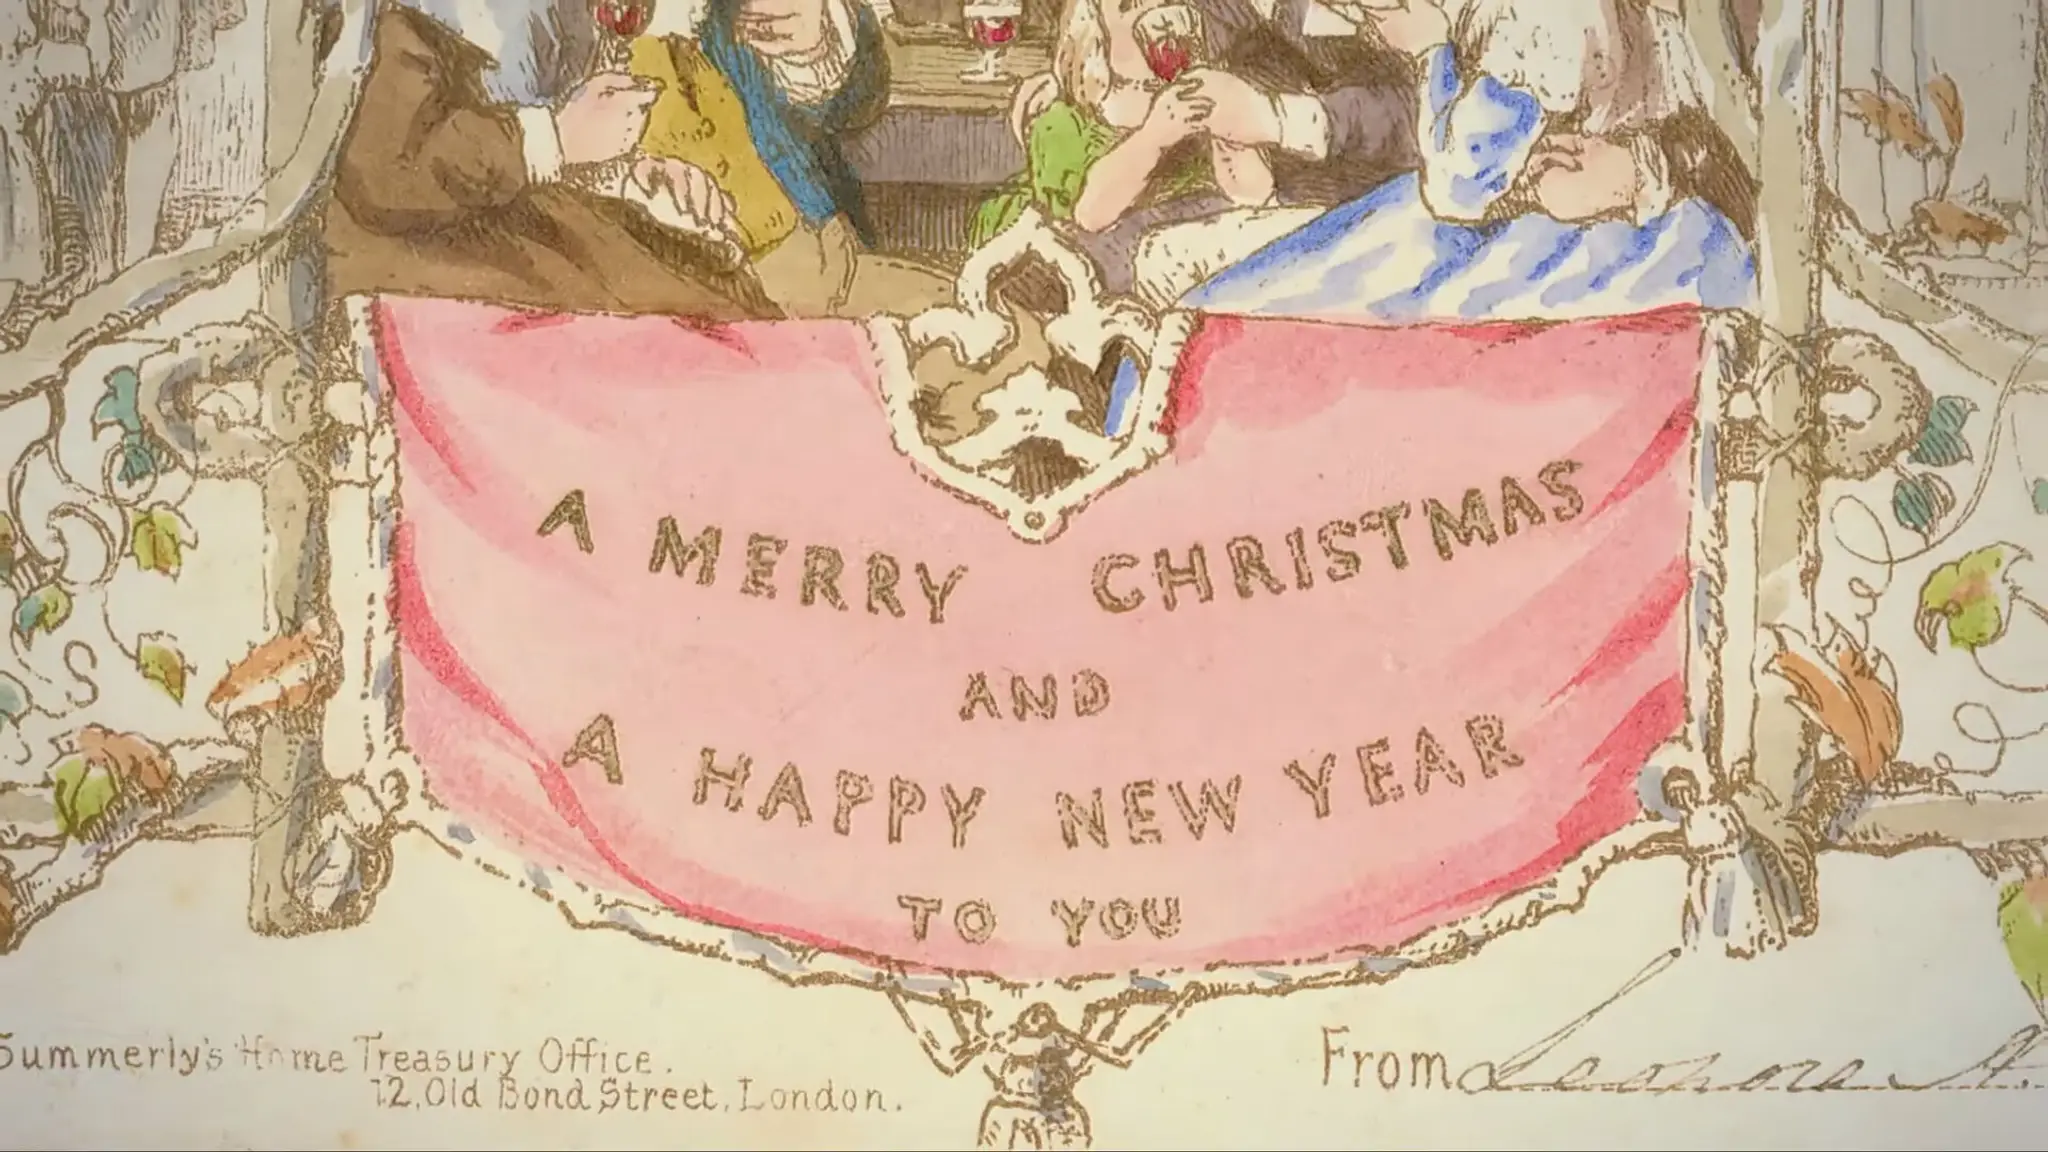 A MERRY CHRISTMAS
AND
A HAPPY NEW YEAR
TO YOU
Summerly's Home Treasury Office.
12, Old Bond Street, London.
From Leonora